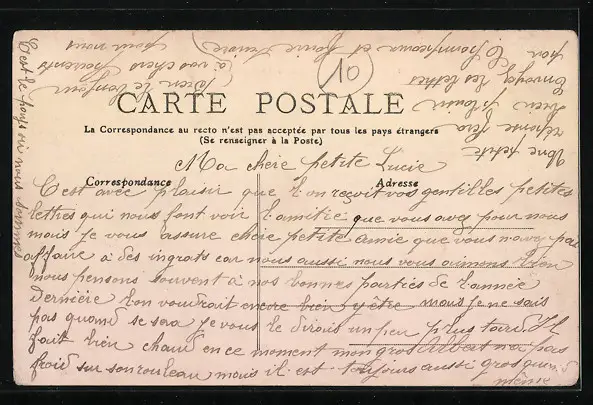 10
CARTE POSTALE
La Correspondance au recto n'est pas acceptée par tous les pays étrangers
(Se renseigner à la Poste)
Ma chère petite Lucie
Correspondance
Adresse
C'est avec plaisir que l'on reçoit vos gentilles petites
lettres qui nous font voir l'amitié que vous avez pour nous
mais je vous assure chère petite amie que vous n'avez pas
affaire à des ingrats car nous aussi nous vous aimons bien
nous pensons souvent à nos bonnes parties de l'année
dernière l'on voudrait encore bien y être mais je ne sais
pas quand se sera je vous le dirais un peu plus tard. Il
fait bien chaud en ce moment mon gros Albert n'a pas
froid sur son rouleau mais il est toujours aussi gros quand
même
Une petite
réponse fera
bien plaisir
Envoyez les lettres
Bien le bonjour
à vos chers parents
pour nous
C'est le pays où nous sommes